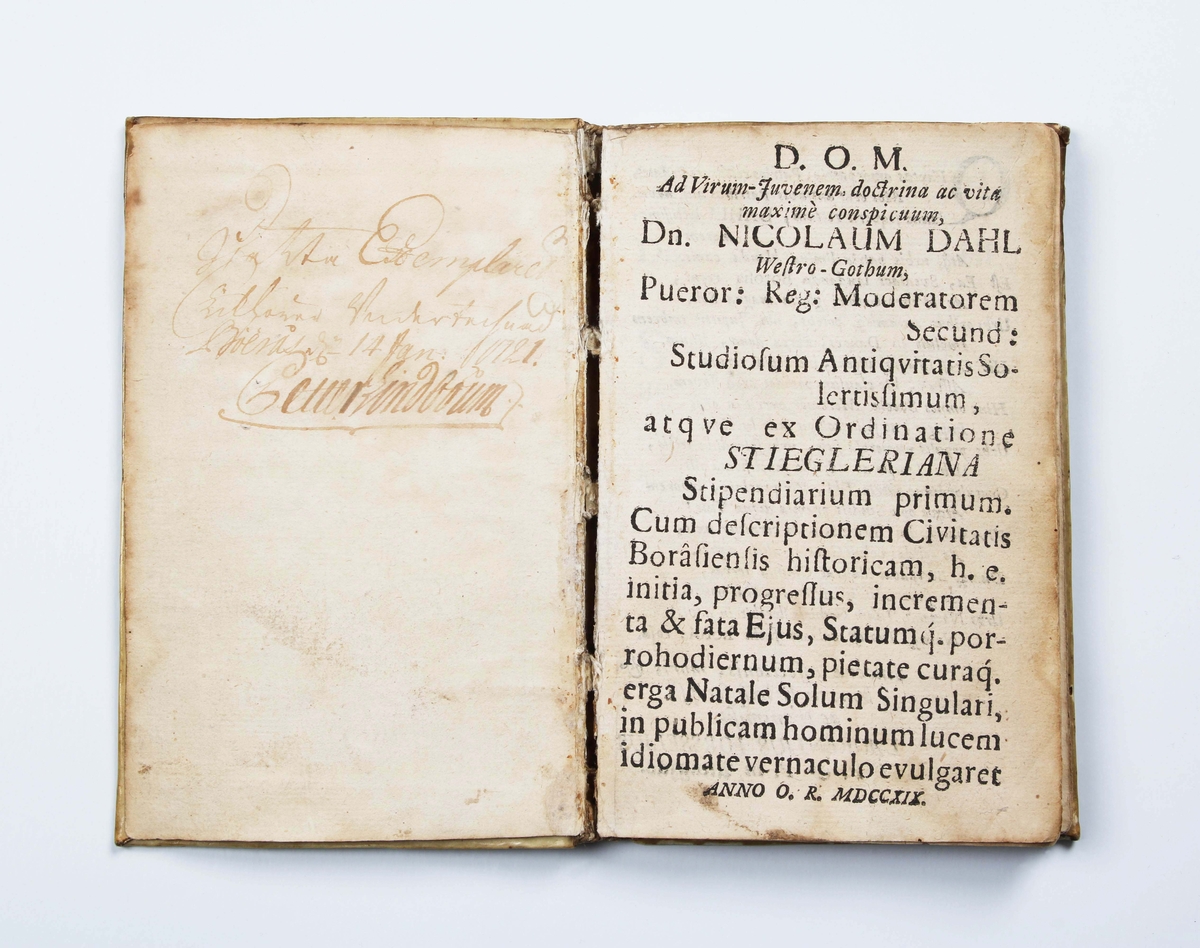 Detta Exemplaret
tillhörer Undertecknad
14 Jan: 1821.
Lindblom
D. O. M.
Ad Virum-Juvenem, doctrina ac vitâ
maximè conspicuum,
Dn. NICOLAUM DAHL
Weſtro-Gothum,
Pueror: Reg: Moderatorem
Secund:
Studioſum Antiqvitatis So-
lertisſimum,
atqve ex Ordinatione
STIEGLERIANA
Stipendiarium primum.
Cum deſcriptionem Civitatis
Borâſienſis hiſtoricam, h. e.
initia, progreſſus, incremen-
ta & fata Ejus, Statumq́. por-
rohodiernum, pietate curaq́.
erga Natale Solum Singulari,
in publicam hominum lucem
idiomate vernaculo evulgaret
ANNO O. R. MDCCXIX.